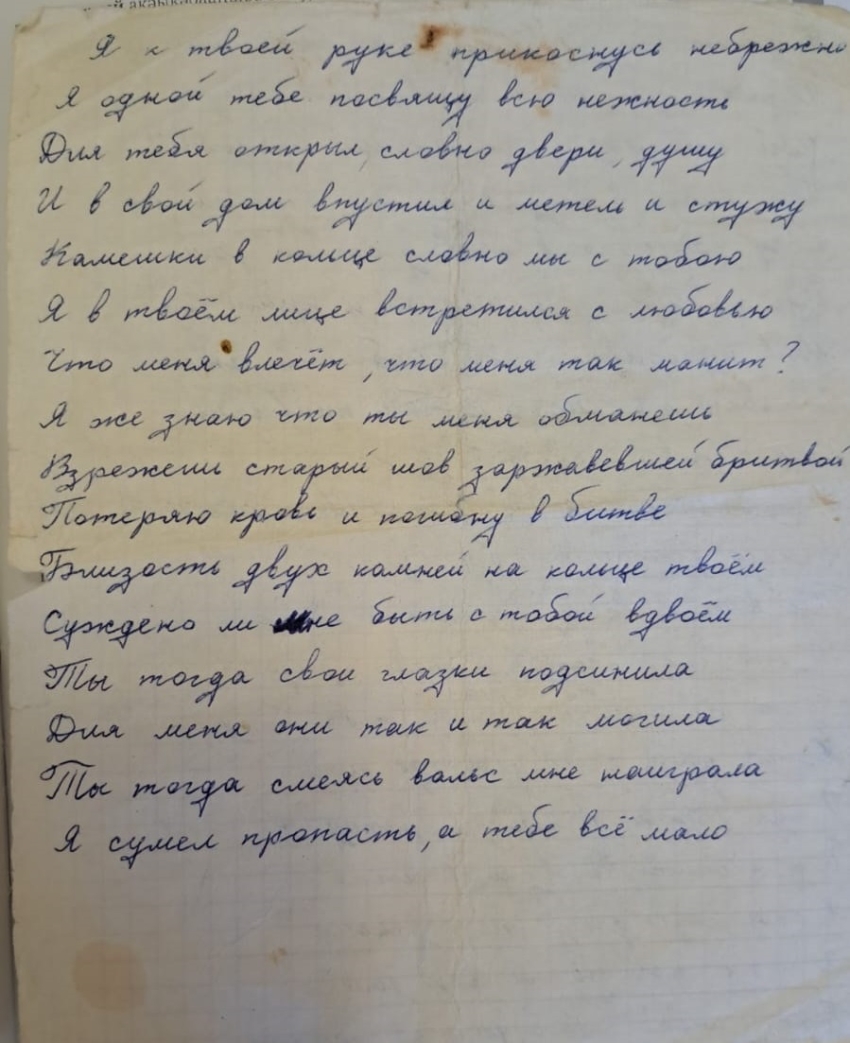 Я к твоей руке прикоснусь небрежно
Я одной тебе посвящу всю нежность
Для тебя открыл, словно двери, душу
И в свой дом впустил и метель и стужу
Камешки в кольце словно мы с тобою
Я в твоём лице встретился с любовью
Что меня влечёт, что меня так манит?
Я же знаю что ты меня обманешь
Взрежешь старый шов заржавевшей бритвой
Потеряю кровь и погибну в битве
Близость двух камней на кольце твоём
Суждено ли мне быть с тобой вдвоём
Ты тогда свои глазки подсинила
Для меня они так и так могила
Ты тогда смеясь вальс мне наиграла
Я сумел пропасть, а тебе всё мало